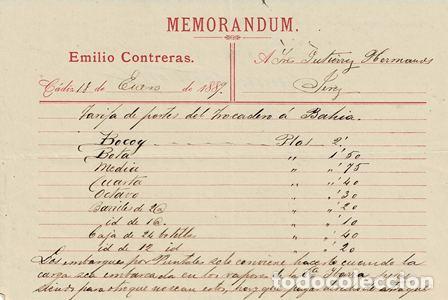 MEMORANDUM.
Emilio Contreras.
A Sres Gutierrez Hermanos
Jerez
Cádiz 18 de Enero de 1889.
Tarifa de portes del Trocadero á Bahia.
Bocoy Ptas 2"
Bota " 1'50
Media " "'75
Cuarta " "'40
Octavo " "'30
Barriles de 20 " "'20
id de 16 " "'10
Caja de 24 botellas " "'40
id de 12 id " "'20
Los embarques por Puntales solo conviene hacerlo cuando la
carga sea embarcada en los vapores de la Cª Ybarra, pues
siendo para otros que no sean estos, hay que
todocoleccion.net